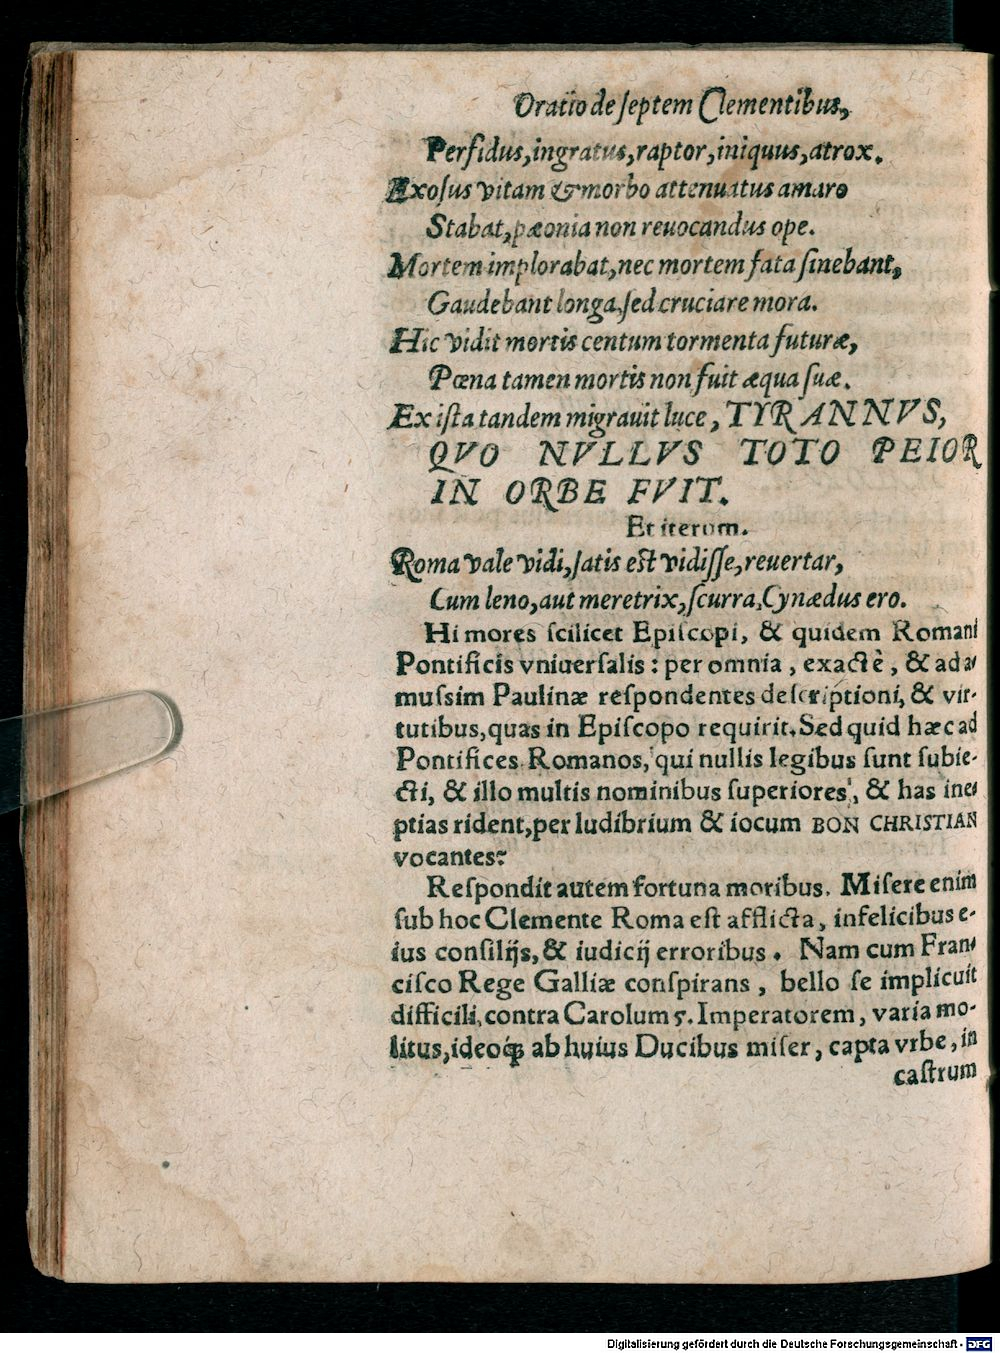 Oratio de ſeptem Clementibus,
Perfidus, ingratus, raptor, iniquus, atrox.
Exoſus vitam & morbo attenuatus amaro
Stabat, pæonia non reuocandus ope.
Mortem implorabat, nec mortem fata ſinebant,
Gaudebant longa, ſed cruciare mora.
Hic vidit mortis centum tormenta futuræ,
Pœna tamen mortis non fuit æqua ſuæ.
Ex iſta tandem migrauit luce, TYRANNVS,
QVO NVLLVS TOTO PEIOR
IN ORBE FVIT.
Et iterum.
Roma vale vidi, ſatis eſt vidiſſe, reuertar,
Cum leno, aut meretrix, ſcurra, Cynædus ero.
Hi mores ſcilicet Epiſcopi, & quidem Romani
Pontificis vniuerſalis: per omnia, exactè, & ad a-
muſsim Paulinæ reſpondentes deſcriptioni, & vir-
tutibus, quas in Epiſcopo requirit. Sed quid hæc ad
Pontifices Romanos, qui nullis legibus ſunt ſubie-
cti, & illo multis nominibus ſuperiores, & has ine-
ptias rident, per ludibrium & iocum BON CHRISTIAN
vocantes?
Reſpondit autem fortuna moribus. Miſere enim
ſub hoc Clemente Roma eſt afflicta, infelicibus e-
ius conſilijs, & iudicij erroribus. Nam cum Fran-
ciſco Rege Galliæ conſpirans, bello ſe implicuit
difficili, contra Carolum 5. Imperatorem, varia mo-
litus, ideoq́ꝫ ab huius Ducibus miſer, capta vrbe, in
caſtrum
Digitalisierung gefördert durch die Deutsche Forschungsgemeinschaft - DFG